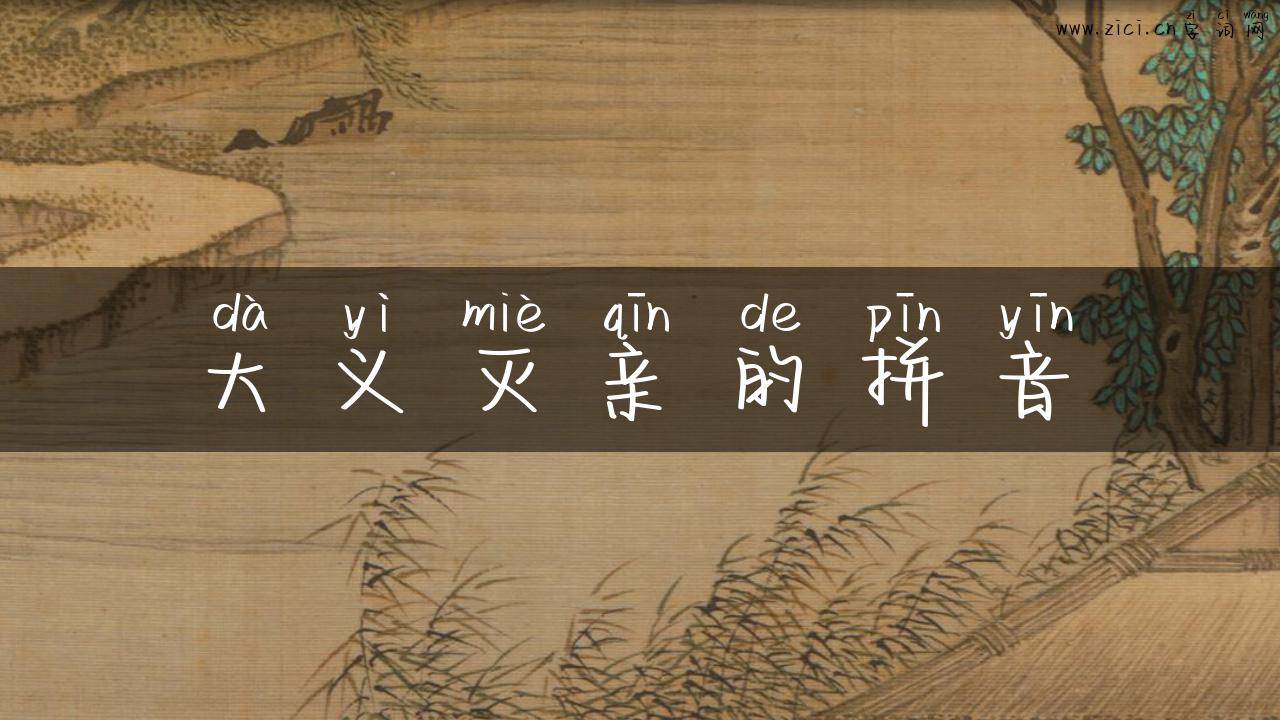 zì cí wǎng
www.zici.cn字词网
dà yì miè qīn de pīn yīn
大义灭亲的拼音